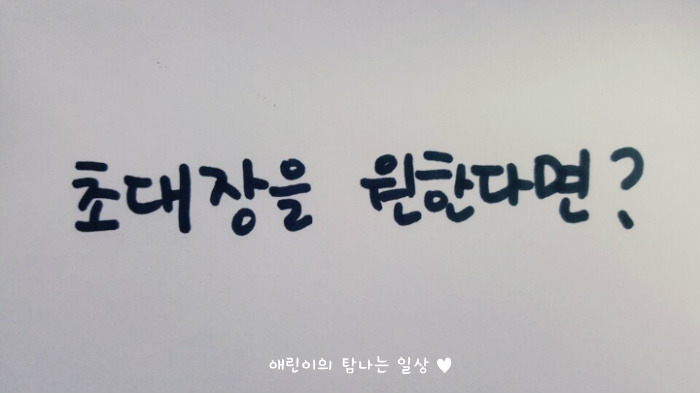 초대장을 원한다면?
애린이의 탐나는 일상 ♥